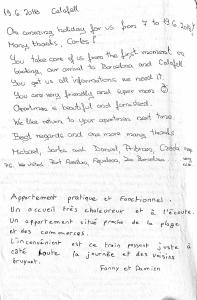 19.6.2018 Calafell
An amazing holiday for us from 7 to 19.6.2018!
Many thanks, Carles!
You take care of us from the first moment on
booking, our arrival to Barcelona and Calafell
You get us all informations we need it.
You are very friendly and open more
Apartman is beatiful and furnished.
We like return to your apartman next time
Best regards and one more many thanks
Michael, Sarka and Daniel
P.S. We visited Port Aventura, Barcelona
Appartement pratique et fonctionnel.
Un accueil très chaleureux et à l'écoute.
Un appartement situé proche de la plage
et des commerces.
L'inconvénient est ce train passant juste à
côté toute la journée et des voisins
bruyant.
Fanny et Damien